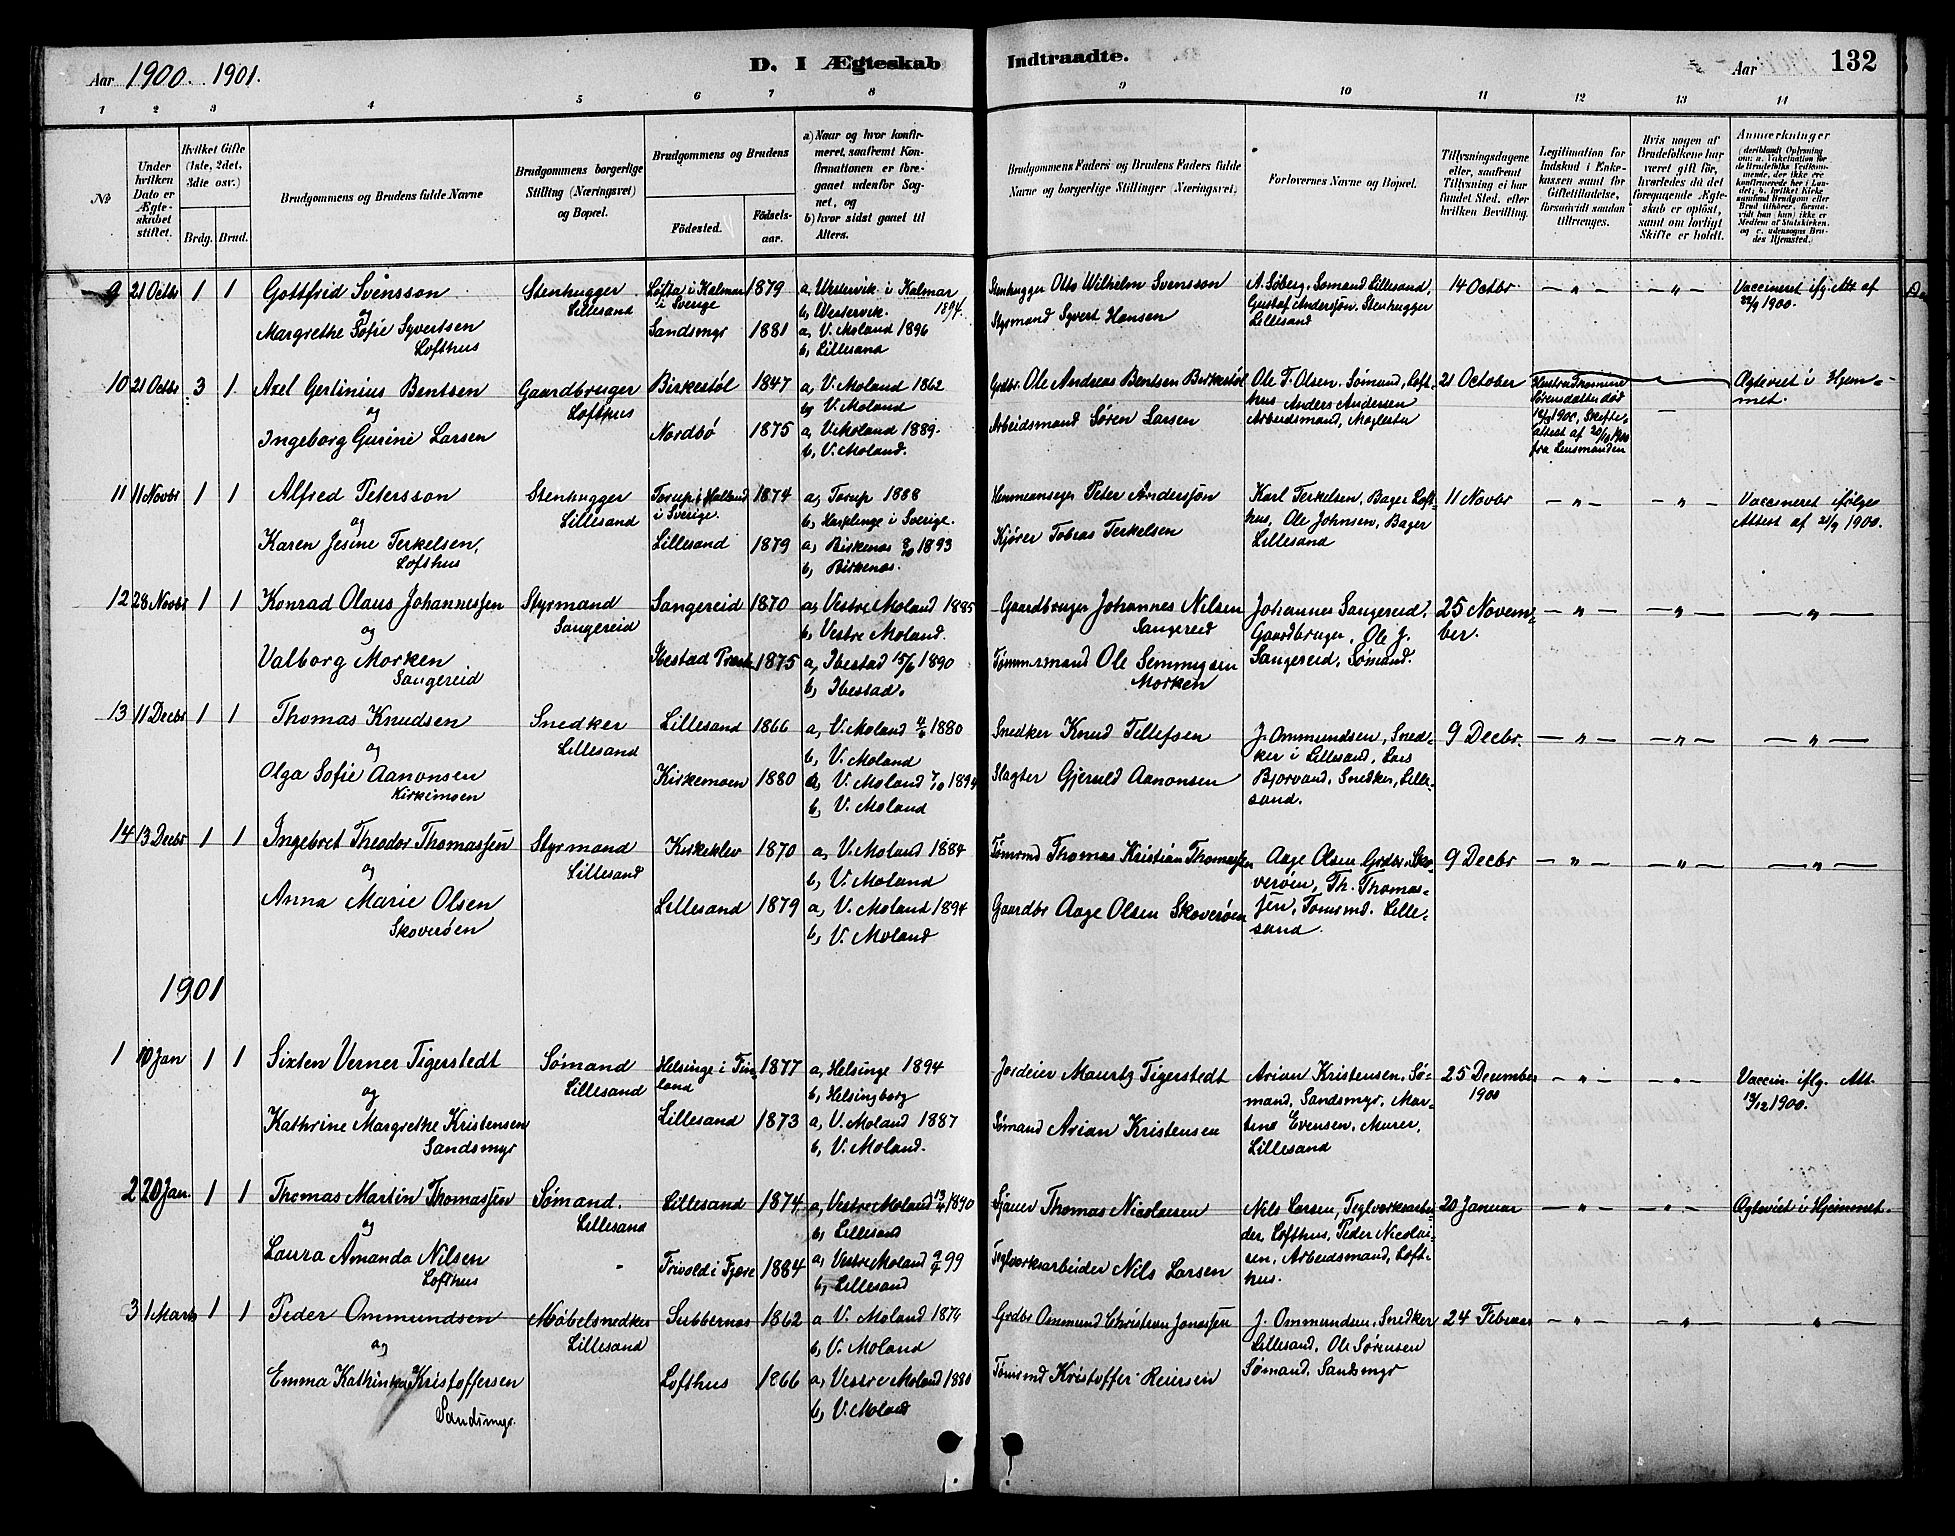 Aar 1900. 1901.
D. I Ægteskab Indtraadte.
Aar
132
1 2 3 4 5 6 7 8 9 10 11 12 13 14
No
Under hvilken Dato er Ægteskabet stiftet.
Hvilket Gifte (1ste, 2det, 3dte osv.)
Brdg. Brud.
Brudgommens og Brudens fulde Navne
Brudgommens borgerlige Stilling (Næringsvei) og Bopæl.
Brudgommens og Brudens
Fødested.
Fødselsaar.
a) Naar og hvor konfirmeret, saafremt Konfirmationen er foregaaet udenfor Sognet, og
b) hvor sidst gaaet til Alters.
Brudgommens Faders og Brudens Faders fulde Navne og borgerlige Stillinger (Næringsvei).
Forlovernes Navne og Bopæl.
Tillysningsdagene eller, saafremt Tillysning ei har fundet Sted, efter hvilken Bevilling.
Legitimation for Indskud i Enkekassen samt for Giftetilladelse, forsaavidt saadan tiltrænges.
Hvis nogen af Brudefolkene har været gift før, hvorledes da det foregaaende Ægteskab er opløst, samt om lovligt Skifte er holdt.
Anmærkninger
9 21 Octbr 1 1 Gottfrid Svensson
og
Margrethe Sofie Syvertsen
Lofthus
Stenhugger
Lillesand
Løfta i Kalmar
i Sverige
1879
a, Westervik i Kalmar
b, Westervik. 1894.
Sandsmyr 1881 a, V. Moland 1896
b, Lillesand
Stenhugger Otto Wilhelm Svensson
Styrmand Syvert Hansen
A. Søberg, Sømand Lillesand,
Gustaf Andersjon, Stenhugger
Lillesand
14 Octbr
Vaccineret iflg. Att. af
22/9 1900.
10 21 Octbr 3 1 Axel Gerlinius Bentsen
og
Ingeborg Gurine Larsen
Gaardbruger
Lofthus
Birkestøl 1847 a, V. Moland 1862
b, V. Moland
Nordbø 1875 a, V. Moland 1889.
b, V. Moland.
Grdbr. Ole Andreas Bentsen Birkestøl
Arbeidsmand Søren Larsen
Ole T. Olsen, Sømand, Lofthus
Anders Andersen
Arbeidsmand,
21 October
1900, Skifteattest
af 20/10 1900
fra Lensmanden
Ægteviet i Hjemmet.
11 11 Novbr 1 1 Alfred Petersson
og
Karen Jesine Terkelsen,
Lofthus
Stenhugger
Lillesand
Torup i Halland
i Sverige.
1874 a, Torup 1888
b, Harplinge i Sverige.
Lillesand 1879 a, Birkenæs 8/10 1893
b, Birkenæs.
Hemmansejer Peter Andersjon
Kjører Tobias Terkelsen
Karl Terkelsen, Bager Lofthus,
Ole Johnsen, Bager
Lillesand
11 Novbr
Vaccineret ifølge
Attest af 21/9 1900.
12 28 Novbr 1 1 Konrad Olaus Johannessen
og
Valborg Morken
Sangereid
Styrmand
Sangereid
Sangereid 1870 a, Vestre Moland 1885
b, Vestre Moland.
Ibestad Præst. 1875 a, Ibestad 15/6 1890
b, Ibestad.
Gaardbruger Johannes Nilsen
Sangereid
Tømmermand Ole Semmigsen
Morken
Johannes Sangereid,
Gaardbruger, Ole J.
Sangereid, Sømand.
25 November.
13 11 Decbr 1 1 Thomas Knudsen
og
Olga Sofie Aanonsen
Kirkemoen
Snedker
Lillesand
Lillesand 1866 a, V. Moland 4/6 1880
b, V. Moland
Kirkemoen 1880 a, V. Moland 7/10 1894
b, V. Moland
Snedker Knud Tellefsen
Slagter Gjeruld Aanonsen
J. Ommundsen, Snedker
i Lillesand, Lars
Bjorvand, Snedker, Lillesand.
9 Decbr.
14 13 Decbr 1 1 Ingebret Theodor Thomassen
og
Anna Marie Olsen
Skoverøen
Styrmand
Lillesand
Kirkeklev 1870 a, V. Moland 1884
b, V. Moland
Lillesand 1879 a, V. Moland 1894
b, V. Moland
Tømrmd Thomas Kristian Thomassen
Gaardbr Aage Olsen Skoverøen
Aage Olsen Grdbr. Skoverøen,
Th. Thomassen,
Tømrmd. Lillesand.
9 Decbr
1901
1 10 Jan 1 1 Sixten Verner Tigerstedt
og
Kathrine Margrethe Kristensen
Sandsmyr
Sømand
Lillesand
Helsinge i Finland
1877 a, Helsinge 1894
b, Helsingborg
Lillesand 1873 a, V. Moland 1887
b, V. Moland.
Jordeier Mauritz Tigerstedt
Sømand Arian Kristensen
Arian Kristensen, Sømand,
Sandsmyr, Martins
Evensen, Murer,
Lillesand
25 December
1900
Vaccin. iflg. Att.
19/12 1900.
2 20 Jan. 1 1 Thomas Martin Thomassen
og
Laura Amanda Nilsen
Lofthus
Sømand.
Lillesand
Lillesand 1874 a, Vestre Moland 13/4 1890
b, Lillesand
Frivold i Fjære 1884 a, Vestre Moland 9/4 99
b, Lillesand
Sjauer Thomas Nicolaisen
Teglverksarbeider Nils Larsen
Nils Larsen, Teglverksarbeider
Lofthus, Peder Nicolaisen,
Arbeidsmand, Lofthus.
20 Januar
Ægteviet i Hjemmet.
3 1 Marts 1 1 Peder Ommundsen
og
Emma Kathinka Kristoffersen
Sandsmyr.
Møbelsnedker
Lillesand
Subbernæs 1862 a V. Moland 1876
b, V. Moland
Lofthus 1866 a, Vestre Moland 1880
b, V. Moland
Grdbr Ommund Christian Jonassen
Tømrmd Kristoffer Reiersen
J. Ommundsen, Snedker
Lillesand, Ole Sørensen
Sømand, Sandsmyr
24 Februar